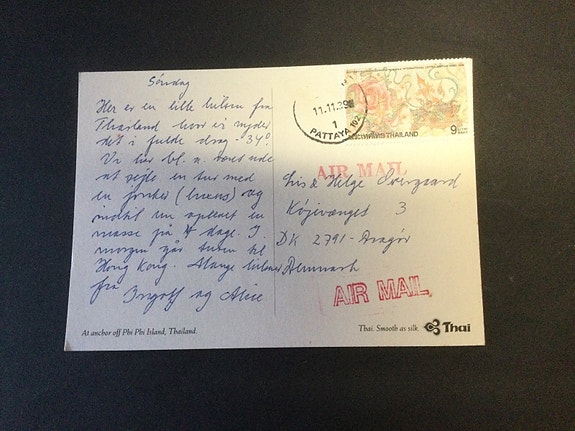 Søndag
Her er en lille hilsen fra
Thailand hvor vi nyder
det i fulde drag. 34°.
Vi har bl. a. været ude
at sejle en tur med
en jonke (luxus) og
en
masse på 4 dage. I
morgen går turen til
Hong Kong. Mange hilsner
fra
Ingolf og Alice
At anchor off Phi Phi Island, Thailand.
11.11.89
1
PATTAYA
THAILAND
9
AIR MAIL
Lis & Helge Overgaard
3
DK 2791 - Dragør
Denmark
AIR MAIL
Thai. Smooth as silk.
Thai